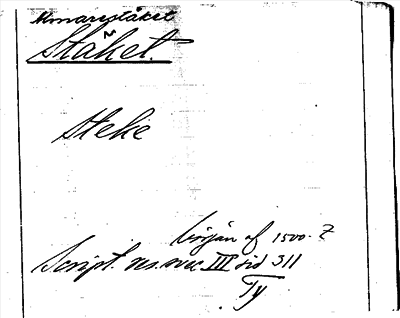 Almarestäket
Stäket.
Steke
början af 1500-t
Script. rer. svec. III sid 311
Ty